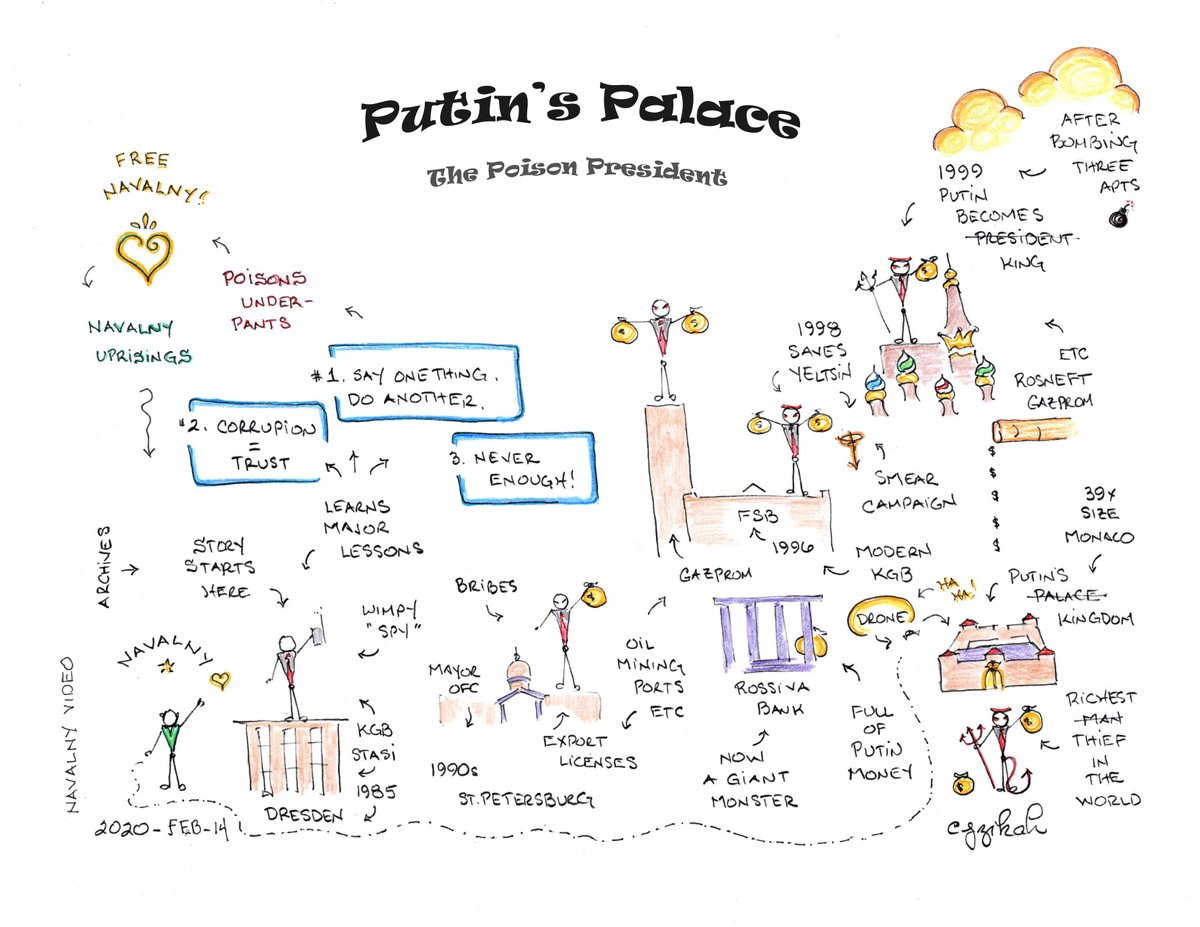 Putin's Palace
The Poison President
FREE
NAVALNY!
NAVALNY
UPRISINGS
POISONS
UNDER-
PANTS
#1. SAY ONE THING.
DO ANOTHER.
#2. CORRUPION
=
TRUST
3. NEVER
ENOUGH!
LEARNS
MAJOR
LESSONS
ARCHIVES
STORY
STARTS
HERE
NAVALNY VIDEO
NAVALNY
2020-FEB-14
WIMPY
"SPY"
KGB
STASI
1985
DRESDEN
BRIBES
MAYOR
OFC
1990s
ST. PETERSBURG
EXPORT
LICENSES
OIL
MINING
PORTS
ETC
GAZPROM
FSB
1996
MODERN
KGB
ROSSIVA
BANK
NOW
A GIANT
MONSTER
FULL
OF
PUTIN
MONEY
1998
SAVES
YELTSIN
SMEAR
CAMPAIGN
AFTER
BOMBING
THREE
APTS
1999
PUTIN
BECOMES
PRESIDENT
KING
ETC
ROSNEFT
GAZPROM
$
$
$
$
$
$
39x
SIZE
MONACO
HA
HA!
DRONE
PUTIN'S
PALACE
KINGDOM
RICHEST
MAN
THIEF
IN
THE
WORLD
cyzikah